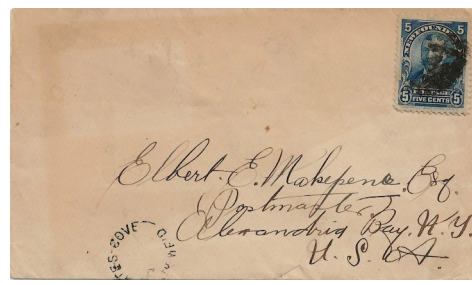 5 NEWFOUND 5
5 FIVE CENTS 5
Elbert. E. Makepence. Esq.
Postmaster,
Alexandria Bay. N. Y.
U. S. A.
TES COVE